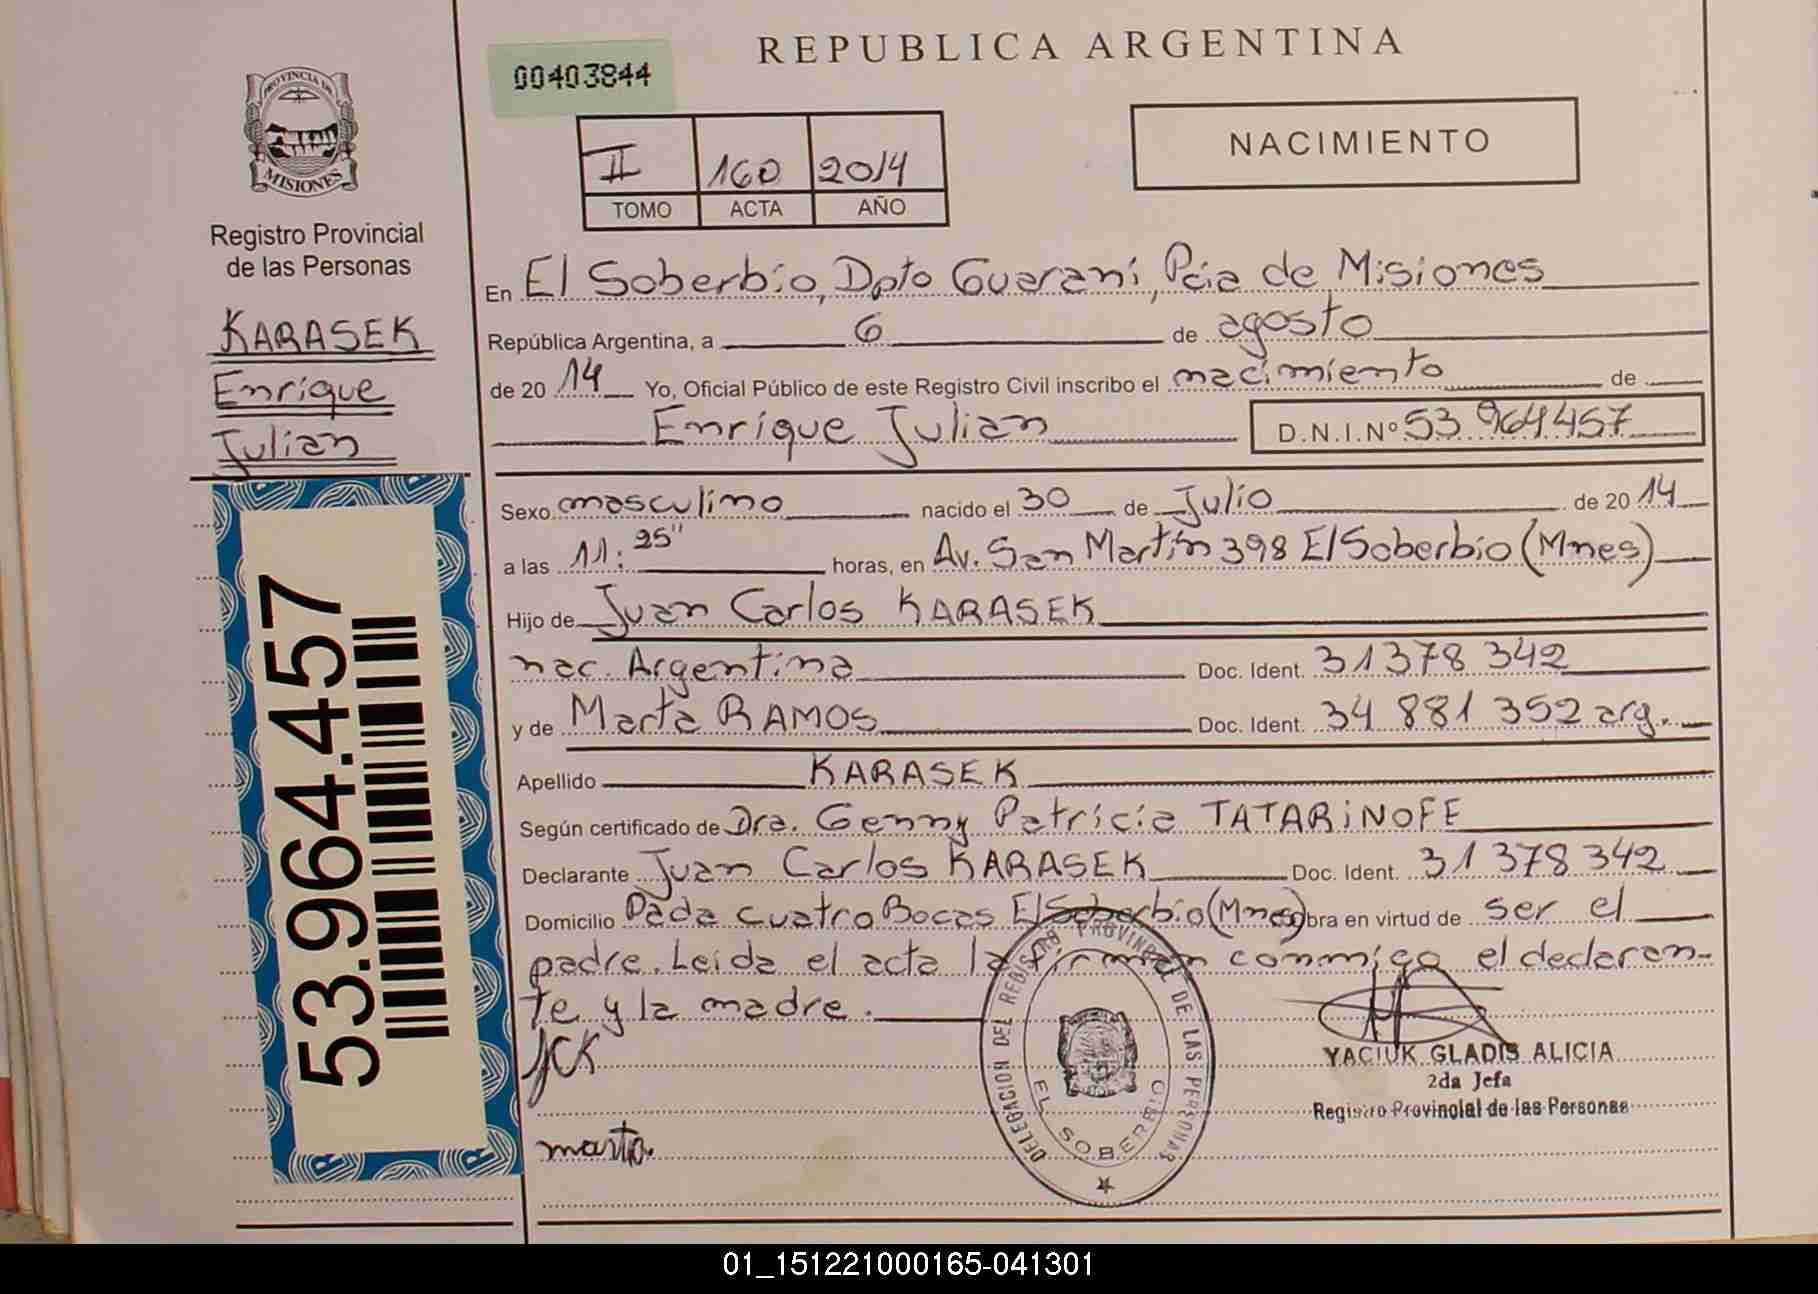 REPUBLICA ARGENTINA
00403844
NACIMIENTO
II 160 2014
TOMO ACTA AÑO
PROVINCIA DE
MISIONES
Registro Provincial
de las Personas
KARASEK
Enrique
Julian
53.964.457
En El Soberbio, Dpto Guaraní, Pcia de Misiones
República Argentina, a 6 de agosto
de 20 14 Yo, Oficial Público de este Registro Civil inscribo el nacimiento de
Enrique Julian D.N.I.Nº 53 964457
Sexo masculino nacido el 30 de Julio de 20 14
a las 11:25" horas, en Av. San Martín 398 El Soberbio (Mnes)
Hijo de Juan Carlos KARASEK
nac. Argentina Doc. Ident. 31378342
y de Marta RAMOS Doc. Ident. 34 881 352 arg.
Apellido KARASEK
Según certificado de Dra. Genny Patricia TATARINOFE
Declarante Juan Carlos KARASEK Doc. Ident. 31378342
Domicilio Pada cuatro Bocas El Soberbio (Mnes) obra en virtud de ser el
padre. Leida el acta la firman conmigo el declaran-
te y la madre.
JCK
marta.
DELEGACION DEL REGISTRO PROVINCIAL DE LAS PERSONAS
EL SOBERBIO
YACIUK GLADIS ALICIA
2da Jefa
Registro Provincial de las Personas
01_151221000165-041301